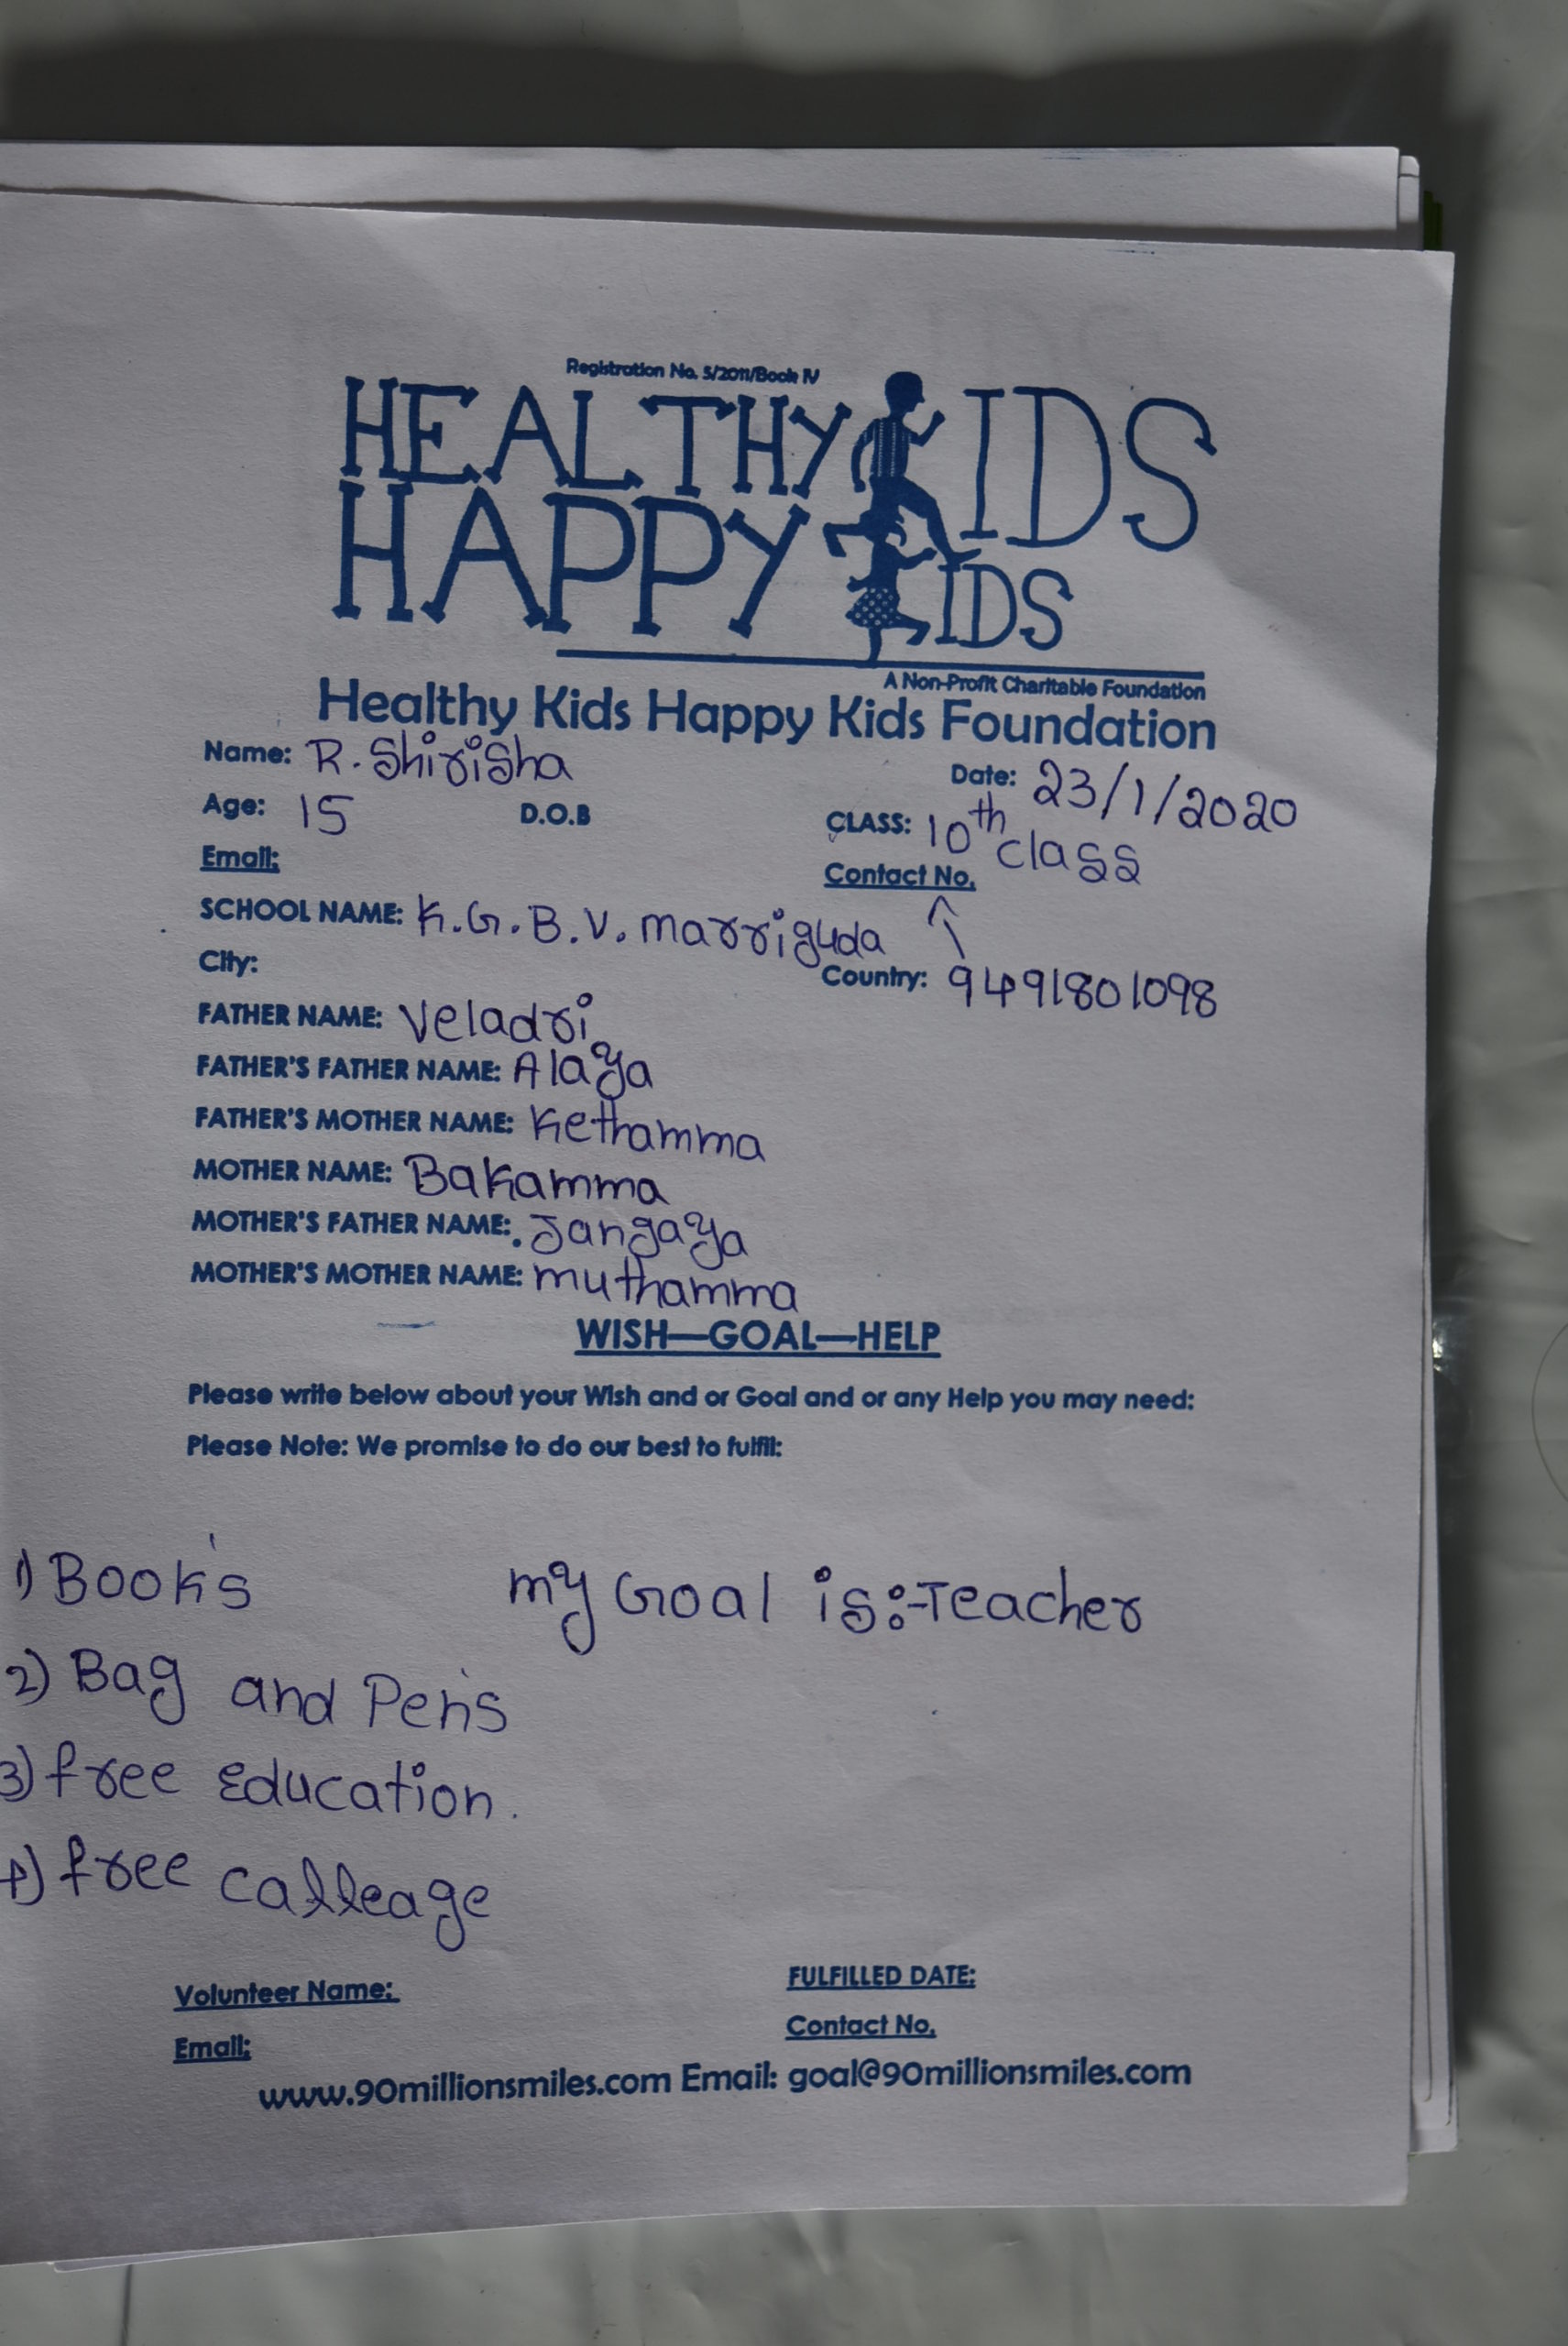 Registration No. 5/2011/Book IV
HEALTHY KIDS
HAPPY KIDS
A Non-Profit Charitable Foundation
Healthy Kids Happy Kids Foundation
Name: R. Shirisha
Date: 23/1/2020
Age: 15 D.O.B CLASS: 10th class
Email: Contact No.
SCHOOL NAME: K.G.B.V. marriguda
City: Country: 9491801098
FATHER NAME: Veladri
FATHER'S FATHER NAME: Alaya
FATHER'S MOTHER NAME: Kethamma
MOTHER NAME: Bakamma
MOTHER'S FATHER NAME: Jangaya
MOTHER'S MOTHER NAME: muthamma
WISH—GOAL—HELP
Please write below about your Wish and or Goal and or any Help you may need:
Please Note: We promise to do our best to fulfil:
1) Book's my Goal is:-Teacher
2) Bag and Pen's
3) free Education.
4) free calleage
Volunteer Name: FULFILLED DATE:
Email: Contact No.
www.90millionsmiles.com Email: goal@90millionsmiles.com